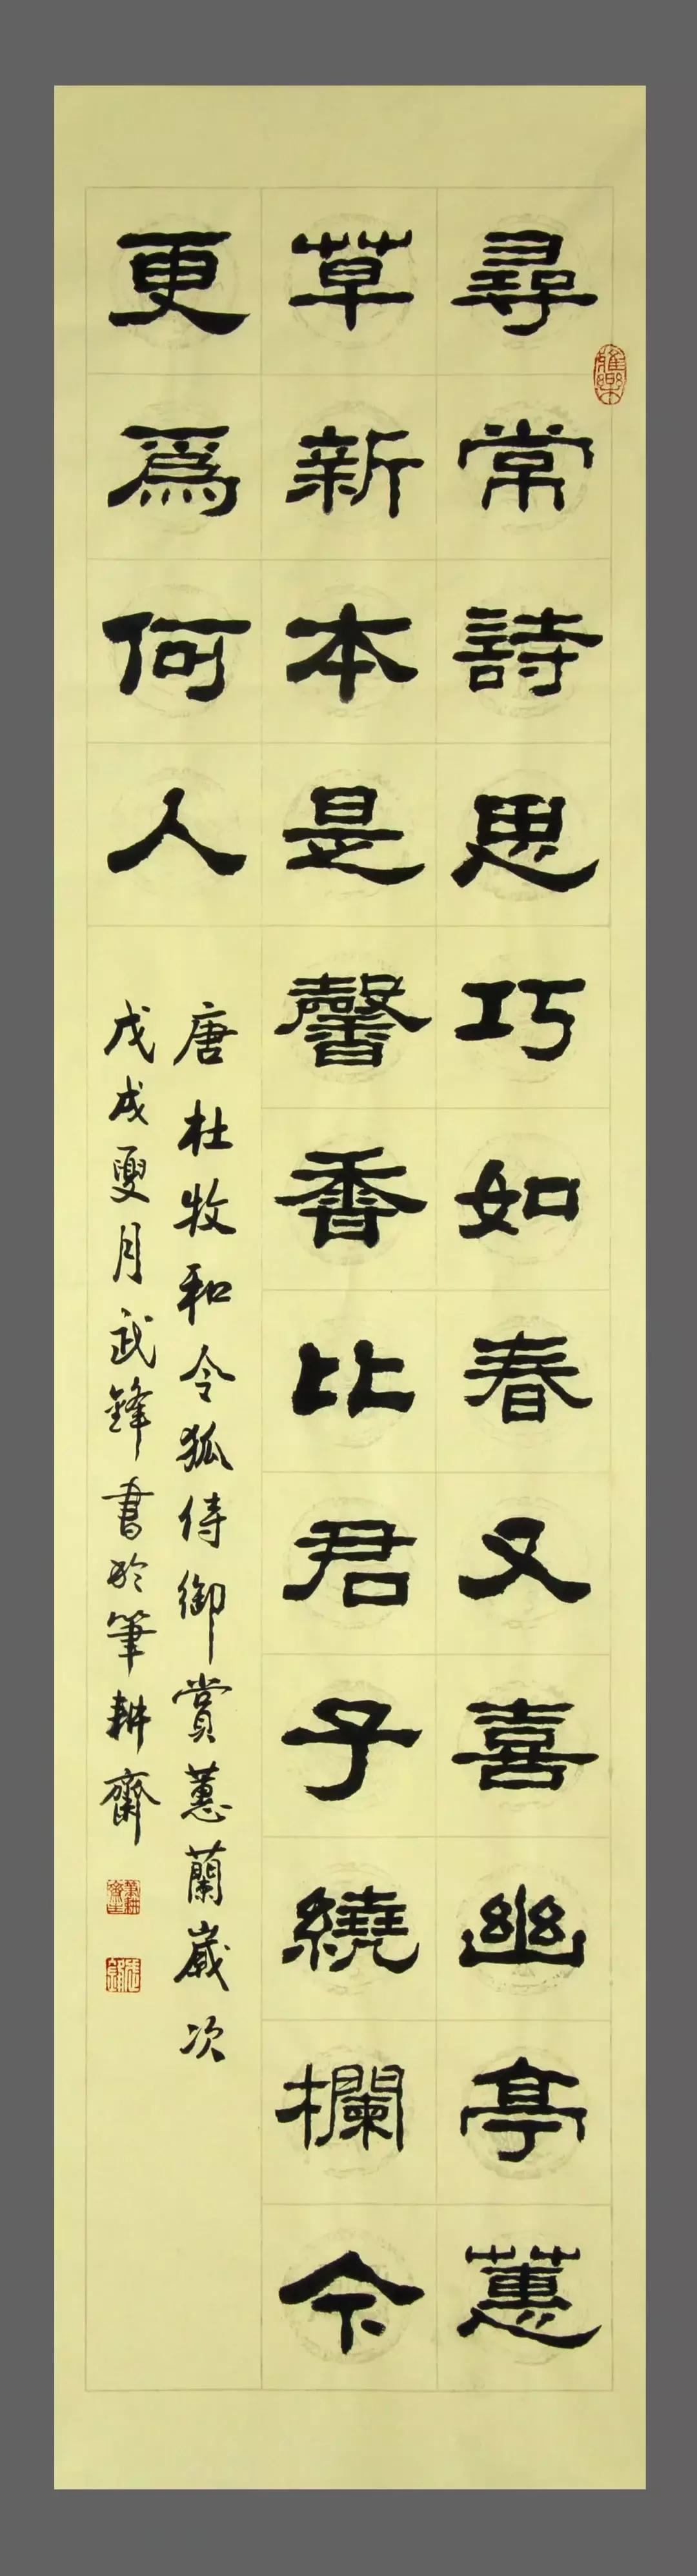 尋常詩思巧如春又喜幽亭蕙
草新本是馨香比君子繞欄今
更爲何人
唐杜牧和令狐侍御賞蕙蘭歲次
戊戌夏月武鋒書於筆耕齋